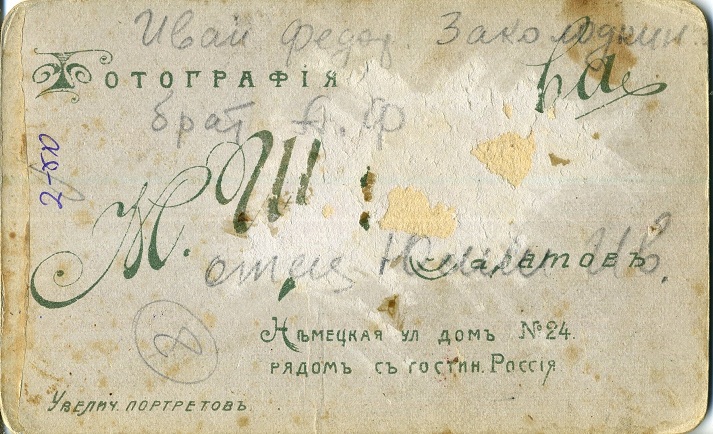 Иван Федор. Заколодкин
Фотографія
брат А. Ф
2-50
М. Ш
отец Юлии Ив.
Саратовъ.
8
Нѣмецкая ул домъ №24.
рядомъ съ гостин. Россія
Увелич. портретовъ.